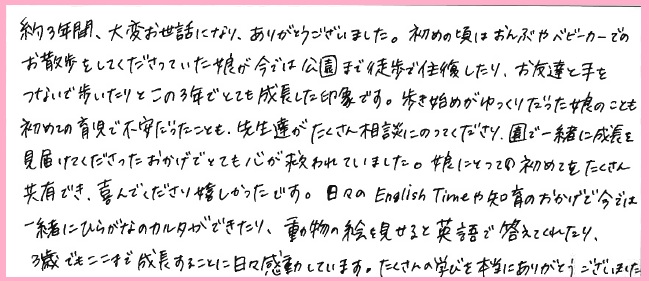 約3年間、大変お世話になり、ありがとうございました。初めの頃はおんぶやベビーカーでの
お散歩をしてくださっていた娘が今では公園まで徒歩で往復したり、お友達と手を
つないで歩いたりとこの3年でとても成長した印象です。歩き始めがゆっくりだった娘のことも
初めての育児で不安だったことも、先生達がたくさん相談にのってくださり、園で一緒に成長を
見届けてくださったおかげでとても心が救われていました。娘にとっての初めてをたくさん
共有でき、喜んでくださり嬉しかったです。日々のEnglish Timeや知育のおかげで今では
一緒にひらがなのカルタができたり、動物の絵を見せると英語で答えてくれたり、
3歳でもここまで成長することに日々感動しています。たくさんの学びを本当にありがとうございました